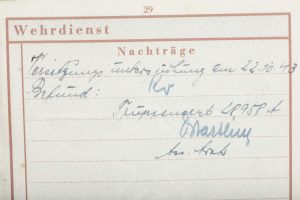 29
Wehrdienst
Nachträge
Versetzungsuntersuchung am 22.10.43
Befund: Kv
Truppenarzt 28958 A
Ass. Arzt